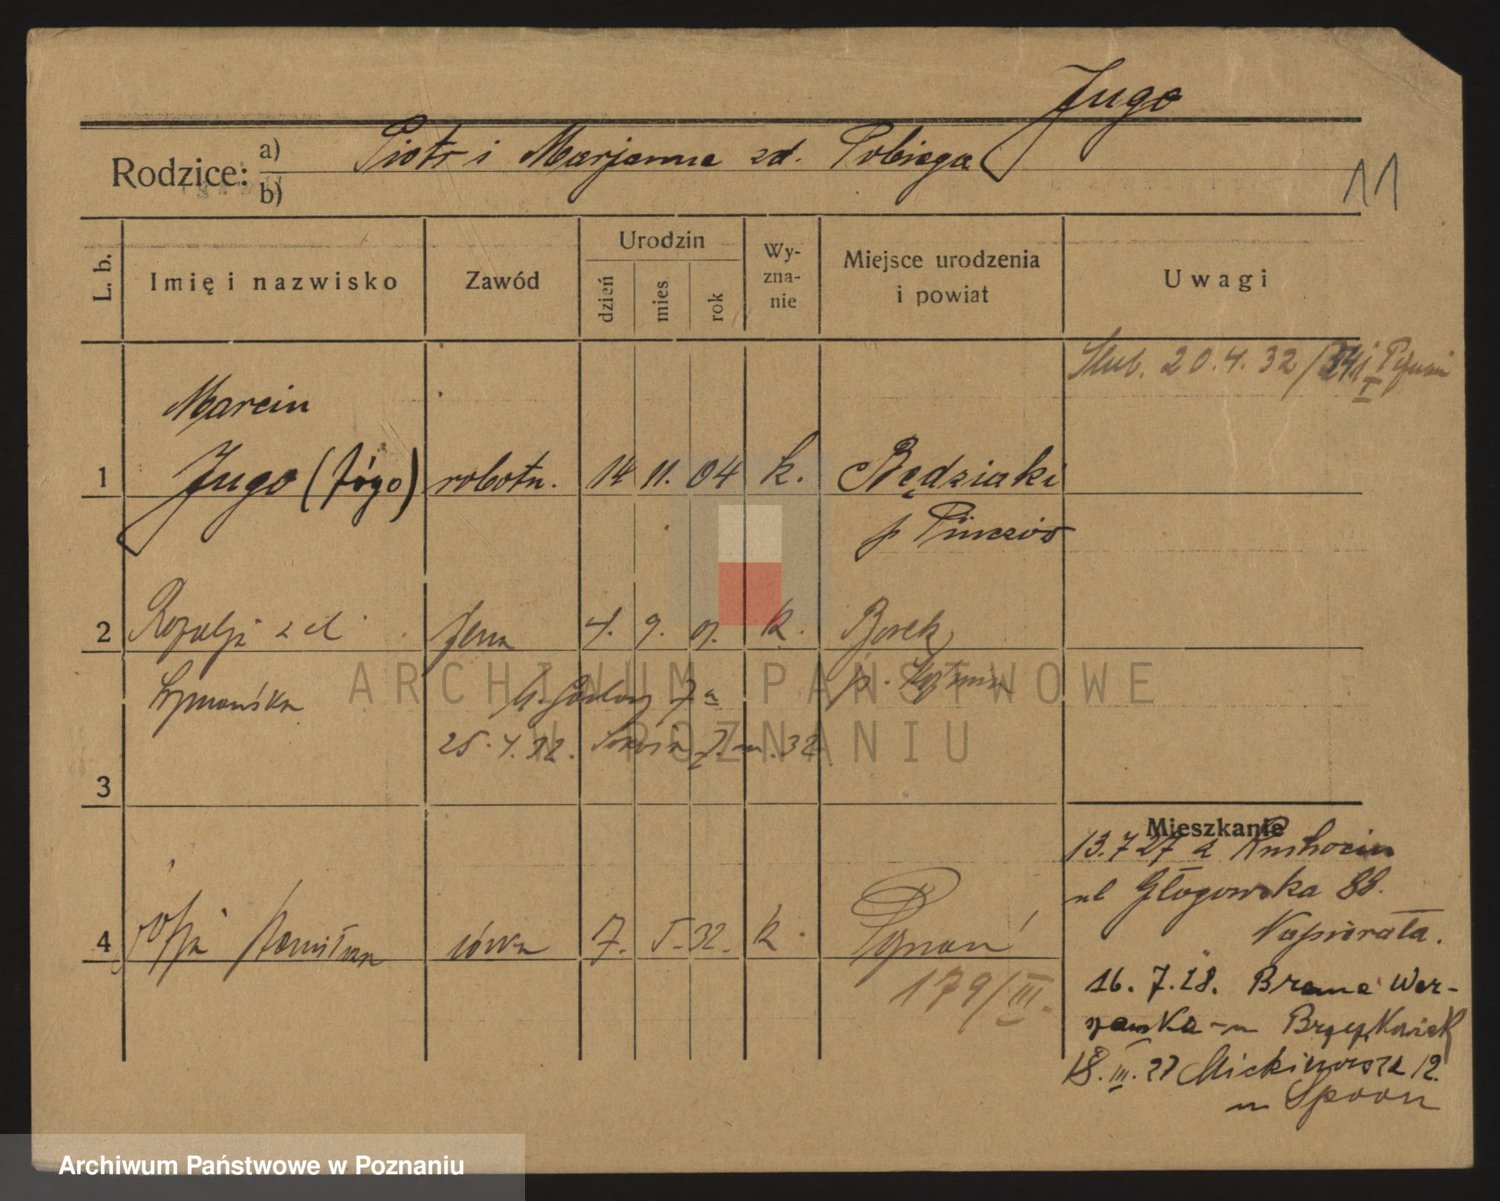 Jugo
Rodzice: a) b)
Piotr i Marjanna zd. Pobiega
11
L. b.
Imię i nazwisko
Zawód
Urodzin
dzień
mies
rok
Wy-
zna-
nie
Miejsce urodzenia
i powiat
Uwagi
20.4.32
Marcin
1 Jugo (Józo) robotn. 14 11. 04 k. Będziaki
p Pinczów
2 Rozalja zd żona 4. 9. 07. k. Borek
Szymańska
25.4.32.
3
Mieszkanie
13.7 27 z
ul Głogowska 88.
Napierała.
4 Zofja Stanisława córka 7. 5. 32. k. Poznań
179/III.
16. 7. 28. Brama War-
szawska
18. III. 27 Mickiewicza 12.
ARCHIWUM PAŃSTWOWE
W POZNANIU
Archiwum Państwowe w Poznaniu